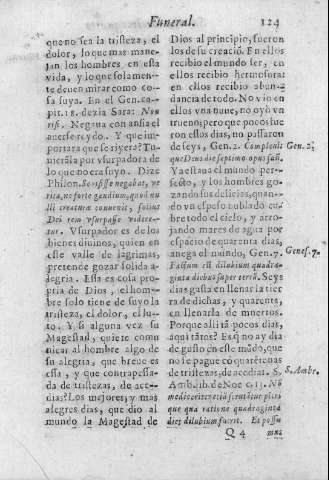 Funeral. 124
que no sea la tristeza, el
dolor, lo que mas mane-
jan los hombres en esta
vida, y lo que solamen-
te deuen mirar como co-
sa suya. En el Gen. ca-
pit. 18. dezia Sara: Non
risi. Negaua con ansia el
auerse reydo. Y que im-
portara que se riyera? Tu-
uierala por vsurpadora de
lo que no era suyo. Dize
Philon. Se risisse negabat, ve-
rita, ne forte gaudium, quod nu-
lli creaturæ conuenit, solius
Dei rem vsurpasse videre-
tur. Vsurpador es de los
bienes diuinos, quien en
este valle de lagrimas,
pretende gozar solida a-
legria. Essa es cosa pro-
pria de Dios, el hom-
bre solo tiene de suyo la
tristeza, el dolor, el lu-
to. Y si alguna vez su
Magestad, quiere comu-
nicar al hombre algo de
su alegria, que breue es
essa, y que contrapessa-
da de tristezas, de ace-
dias? Los mejores, y mas
alegres dias, que dio al
mundo la Magestad de
Dios al principio, fueron
los de su creació. En ellos
recibio el mundo ser, en
ellos recibio hermosura:
en ellos recibio abun-
dancia de todo. No vio en
ellos vna nuue, no oyò vn
trueno: pero que pocos fue
ron estos dias, no passaron
de seys, Gen. 2. Compleuit
que Deus die septimo opus suũ.
Ya estaua el mundo per-
fecto, y los hombres go-
zando sus delicias, quan-
do vn espeso nublado cu-
bre todo el cielo, y arro-
jando mares de agua por
espacio de quarenta dias,
anega el mundo, Gen. 7.
Factum est diluuium quadra-
ginta diebus super terrã. Seys
dias gasta en llenar la tier
ra de dichas, y quarenta,
en llenarla de muertos.
Porque alli tã pocos dias,
aqui tãtos? Es q̃ no ay dia
de gusto en este mũdo, que
no le pague cõ quarẽtenas
de tristezas, de acedias. S.
Amb. lib. de Noe c. 13. Nõ
mediocriter etiã scrutãtur pleri-
que qua ratione quadraginta
dies diluuium fuerit. Et possu
Gen. 2.
Genes. 7.
S. Ambr.
Q 4